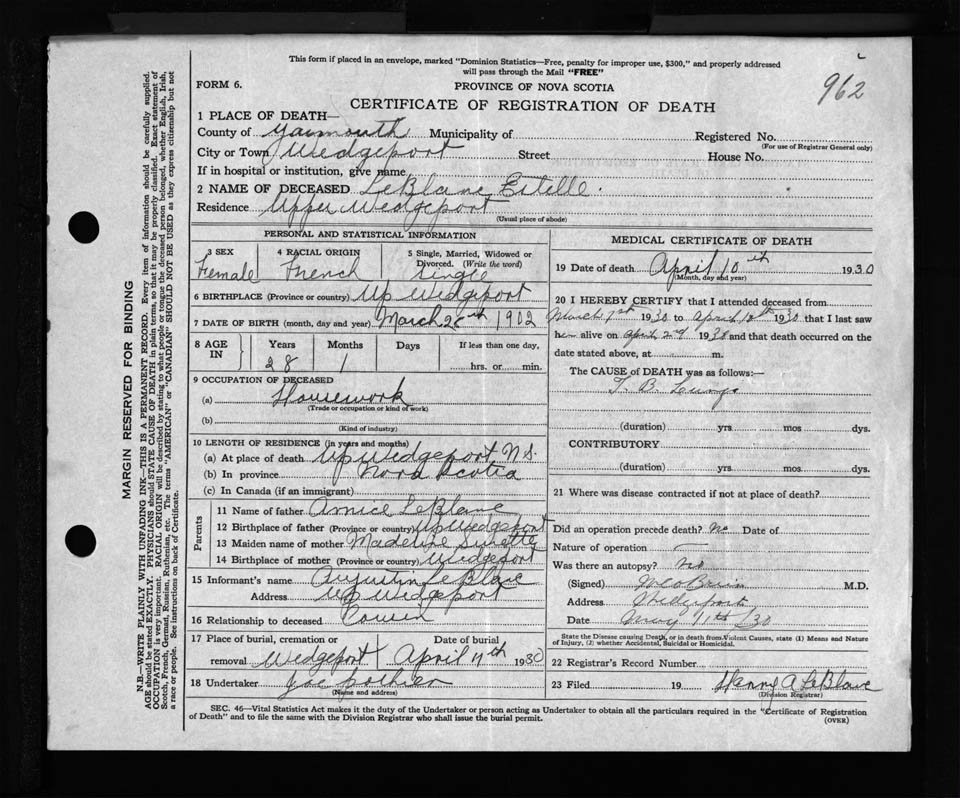 This form if placed in an envelope, marked "Dominion Statistics—Free, penalty for improper use, $300," and properly addressed
will pass through the Mail "FREE"
962
FORM 6.
PROVINCE OF NOVA SCOTIA
CERTIFICATE OF REGISTRATION OF DEATH
1 PLACE OF DEATH—
County of Yarmouth Municipality of
Registered No.
(For use of Registrar General only)
City or Town Wedgeport Street House No.
If in hospital or institution, give name
2 NAME OF DECEASED LeBlanc Estelle.
Residence Upper Wedgeport
(Usual place of abode)
PERSONAL AND STATISTICAL INFORMATION
3 SEX
Female
4 RACIAL ORIGIN
French
5 Single, Married, Widowed or
Divorced. (Write the word)
single
6 BIRTHPLACE (Province or country) Up Wedgeport
7 DATE OF BIRTH (month, day and year) March 1902
8 AGE IN
Years Months Days If less than one day,
28 1 hrs. or min.
9 OCCUPATION OF DECEASED
(a) Housework
(Trade or occupation or kind of work)
(b)
(Kind of industry)
10 LENGTH OF RESIDENCE (in years and months)
(a) At place of death Up Wedgeport N.S.
(b) In province Nova Scotia
(c) In Canada (if an immigrant)
Parents
11 Name of father LeBlanc
12 Birthplace of father (Province or country) Up Wedgeport
13 Maiden name of mother Surette
14 Birthplace of mother (Province or country) Wedgeport
15 Informant's name Augustin LeBlanc
Address Up Wedgeport
16 Relationship to deceased
17 Place of burial, cremation or
removal Wedgeport
Date of burial
April 1930
18 Undertaker Joe Pothier
(Name and address)
MEDICAL CERTIFICATE OF DEATH
19 Date of death April 10th 1930
(Month, day and year)
20 I HEREBY CERTIFY that I attended deceased from
March 1st 1930 to April 10th 1930 that I last saw
her alive on April 2nd 1930 and that death occurred on the
date stated above, at m.
The CAUSE of DEATH was as follows:—
T. B. Lungs
(duration) yrs mos. dys.
CONTRIBUTORY
(duration) yrs. mos. dys.
21 Where was disease contracted if not at place of death?
Did an operation precede death? no Date of
Nature of operation —
Was there an autopsy? no
(Signed) M.D.
Address
Date 30
State the Disease causing Death, or in death from Violent Causes, state (1) Means and Nature
of Injury, (2) whether Accidental, Suicidal or Homicidal.
22 Registrar's Record Number
23 Filed 19 Henry A LeBlanc
(Division Registrar)
SEC. 46—Vital Statistics Act makes it the duty of the Undertaker or person acting as Undertaker to obtain all the particulars required in the "Certificate of Registration
of Death" and to file the same with the Division Registrar who shall issue the burial permit.
(OVER)
MARGIN RESERVED FOR BINDING
N.B.—WRITE PLAINLY WITH UNFADING INK—THIS IS A PERMANENT RECORD. Every item of information should be carefully supplied.
AGE should be stated EXACTLY. PHYSICIANS should STATE CAUSE OF DEATH in plain terms, so that it may be properly classified. Exact statement of
OCCUPATION is very important. RACIAL ORIGIN will be described by stating to what people or tongue the deceased person belonged, whether English, Irish,
Scotch, French, German, Russian, Ruthenian, etc. The terms "AMERICAN" or "CANADIAN" SHOULD NOT BE USED as they express citizenship but not
a race or people. See instructions on back of Certificate.